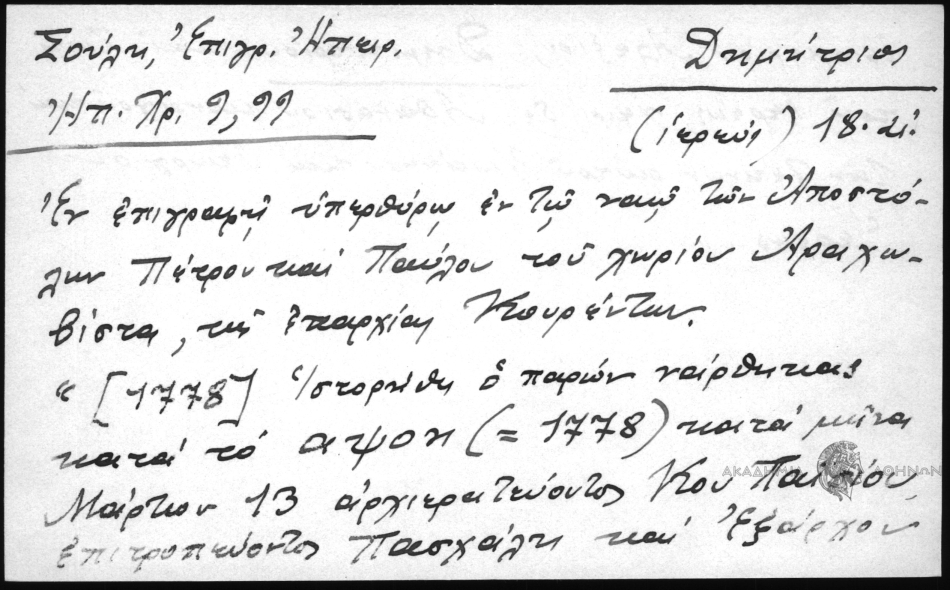 Σούλη, Ἐπιγρ. Ἠπειρ.
Ἠπ. Χρ. 9, 99
Δημήτριος
(ἱερεύς) 18. αἰ.
Ἐν ἐπιγραφῇ ὑπερθύρῳ ἐν τῷ ναῷ τῶν Ἀποστό-
λων Πέτρου καί Παύλου τοῦ χωρίου Ἀραχω-
βίστα, τῆς ἐπαρχίας Κουρέντων.
" [1778] Ἱστορήθη ὁ παρών νάρθηκας
κατά τό αψοη (= 1778) κατά μῆνα
Μάρτιον 13 ἀρχιερατεύοντος Κου Παϊσίου
ἐπιτροπεύοντος Πασχάλη καί Ἐξάρχου
ΑΚΑΔΗΜΙΑ ΑΘΗΝΩΝ